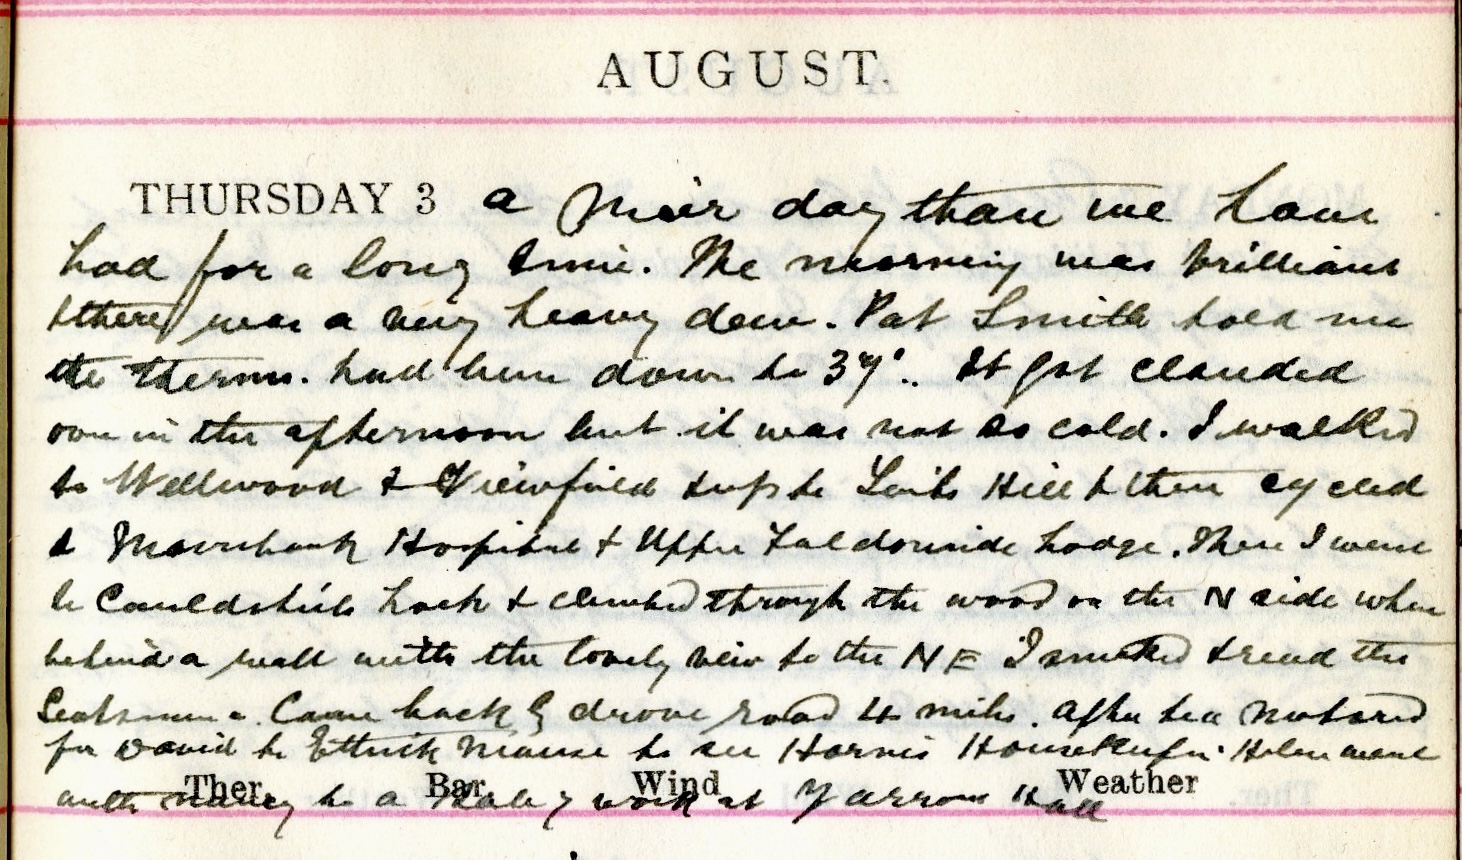 AUGUST.
THURSDAY 3 a nicer day than we have
had for a long time. The morning was brilliant
& there was a very heavy dew. Pat Smith told me
the therm. had been down to 37°. It got clouded
over in the afternoon but it was not so cold. I walked
to Wellwood & Viewfield & up to Hill & then cycled
to Hospital & Upper Faldonside Lodge. Then I went
to Cauldshiels Loch & climbed through the wood on the N side where
behind a wall with the lovely view to the NE I smoked & read the
Scotsman. Came back by drove road 4 miles. After tea motored
for David to Ettrick Manse to see Housekeeper. Helen went
with to a of work at Yarrow Hall
Ther. Bar. Wind Weather